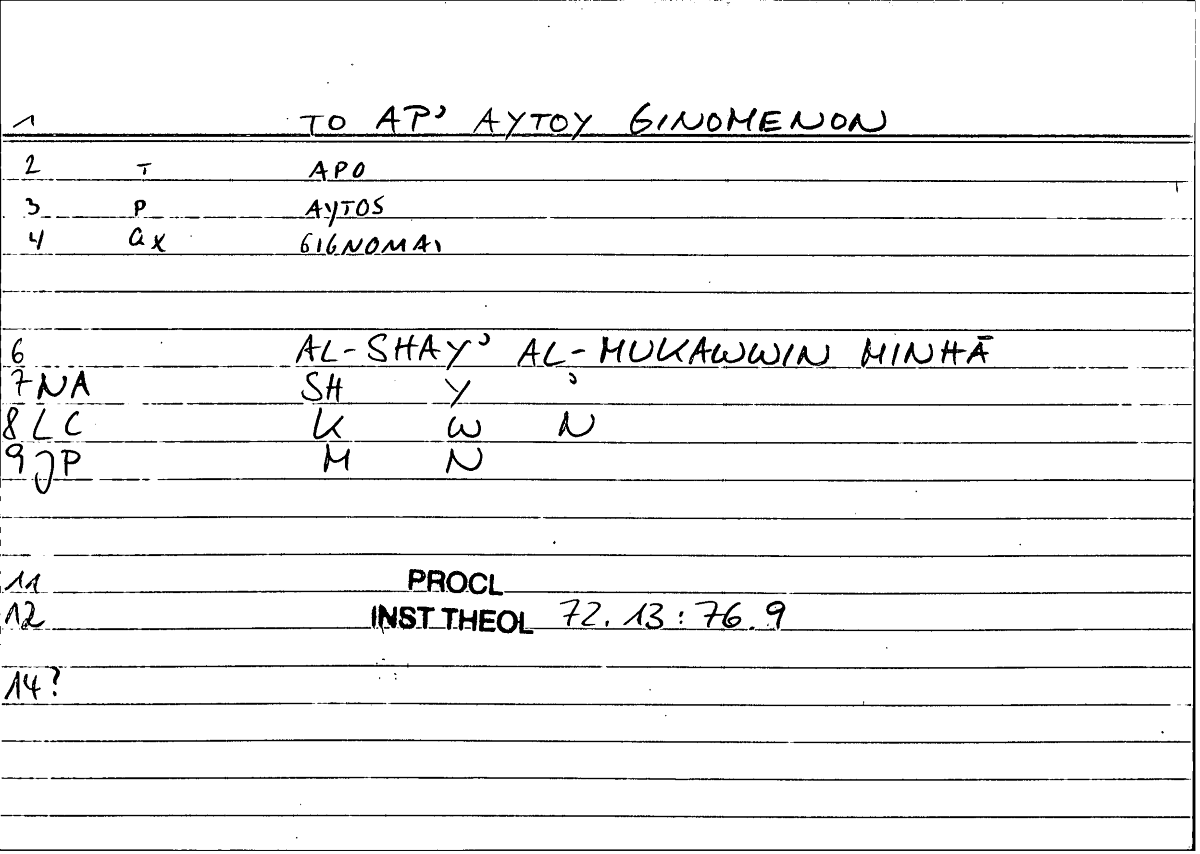 1 TO AP' AYTOY GINOMENON
2 T APO
3 P AYTOS
4 QX GIGNOMAI
6 AL-SHAY' AL-MUKAWWIN MINHĀ
7 NA SH Y '
8 LC K W N
9 JP M N
11 PROCL
12 INST THEOL 72.13:76.9
14?